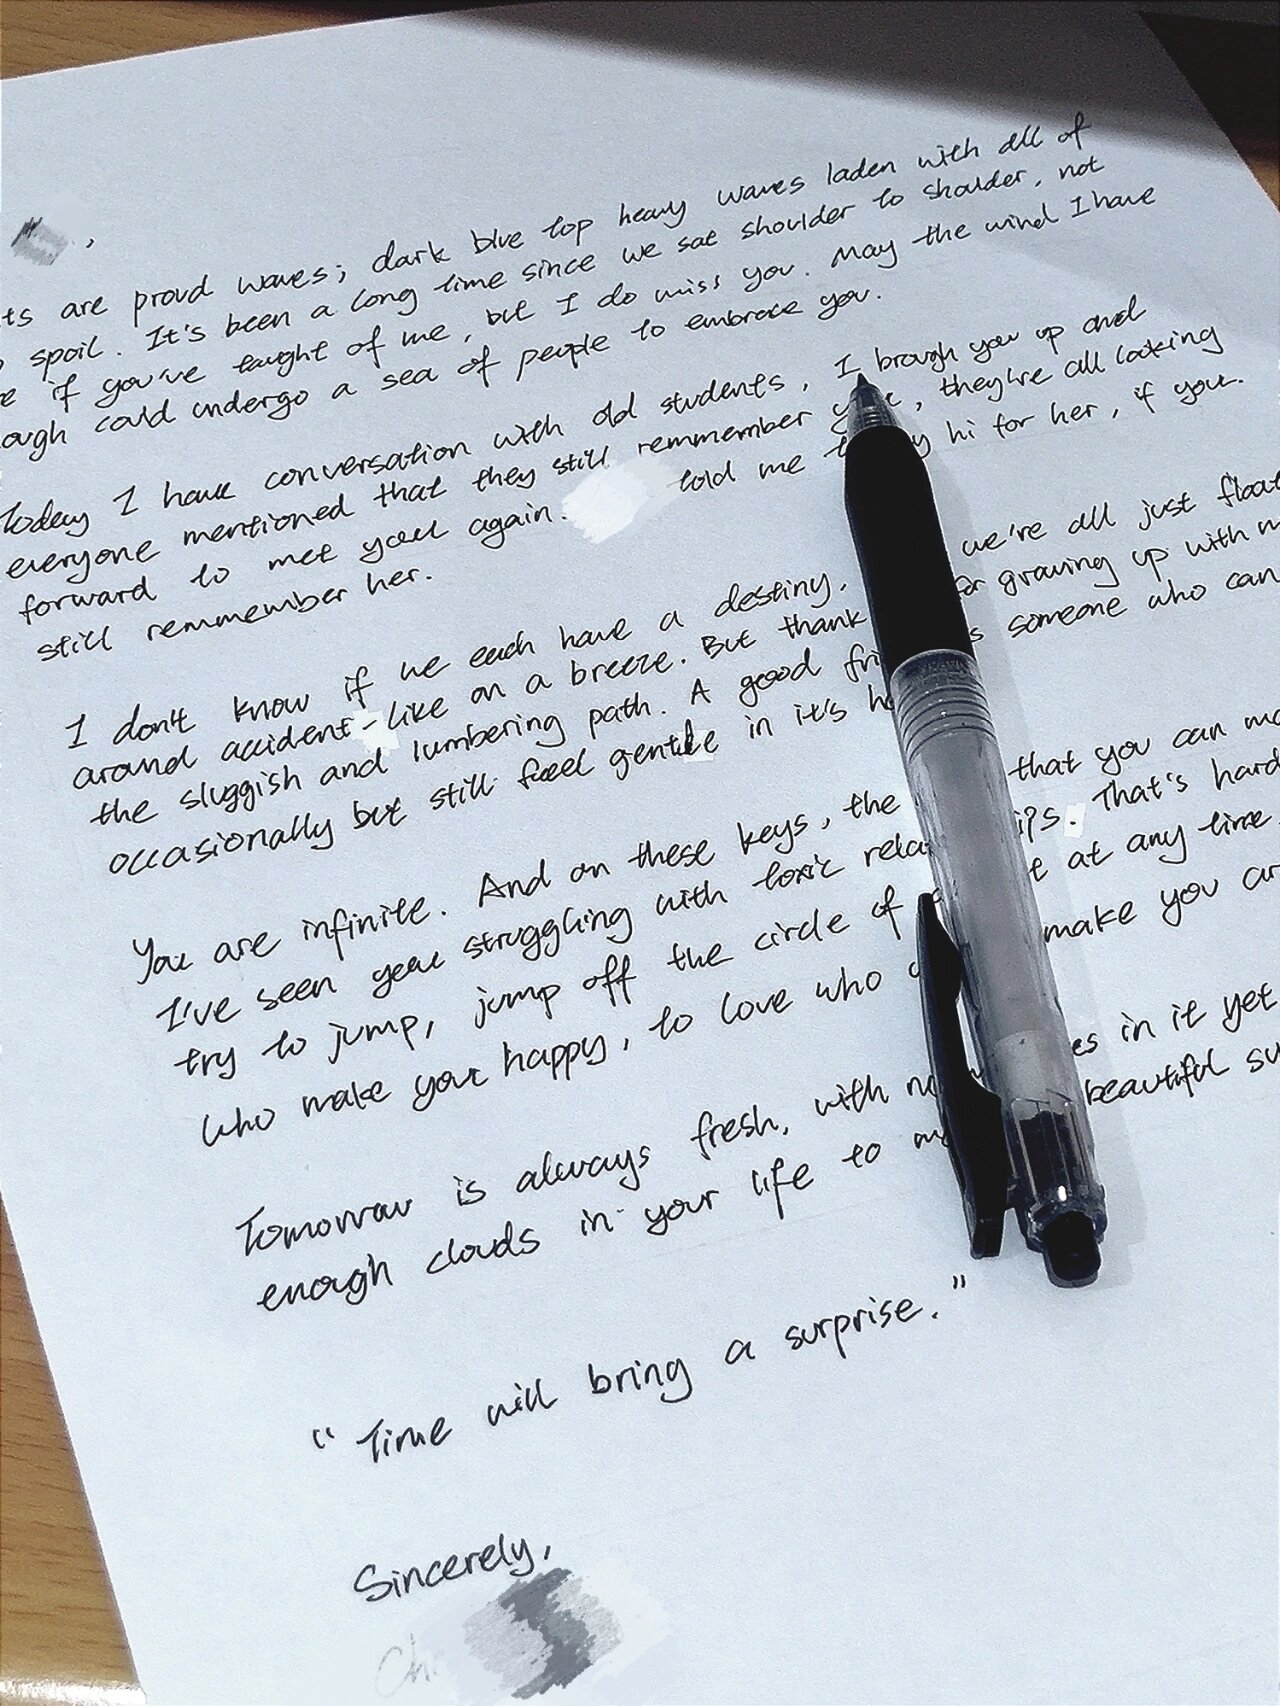 ,
ts are proud waves; dark blue top heavy waves laden with all of
spoil. It's been a long time since we sat shoulder to shoulder, not
e if you've taught of me, but I do miss you. May the wind I have
ough could undergo a sea of people to embrace you.
Today I have conversation with old students, I brough you up and
everyone mentioned that they still remmember, they're all looking
forward to met you again. told me hi for her, if you
still remmember her.
I don't know if we each have a destiny, we're all just float
around accident-like on a breeze. But thank for growing up with
the sluggish and lumbering path. A good someone who can
occasionally but still feel gentle in it's
You are infinite. And on these keys, the that you can
I've seen you struggling with toxic ips. That's hard
try to jump, jump off the circle of at any time
who make your happy, to love who make you
Tomorrow is always fresh, with es in it yet
enough clouds in your life to beautiful su
"Time will bring a surprise."
Sincerely,